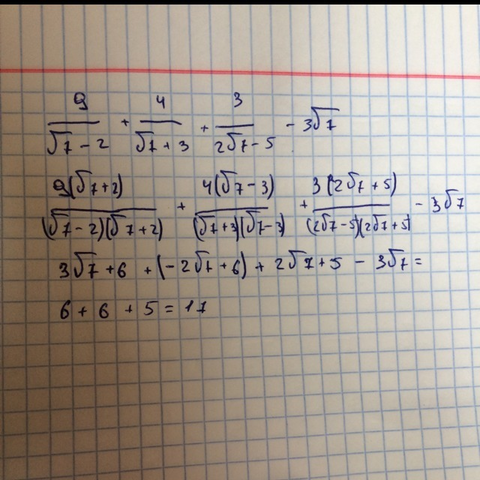 9/(√7 - 2) + 4/(√7 + 3) + 3/(2√7 - 5) - 3√7
9(√7+2)/((√7-2)(√7+2)) + 4(√7-3)/((√7+3)(√7-3)) + 3(2√7+5)/((2√7-5)(2√7+5)) - 3√7
3√7+6 + (-2√7+6) + 2√7+5 - 3√7 =
6 + 6 + 5 = 17